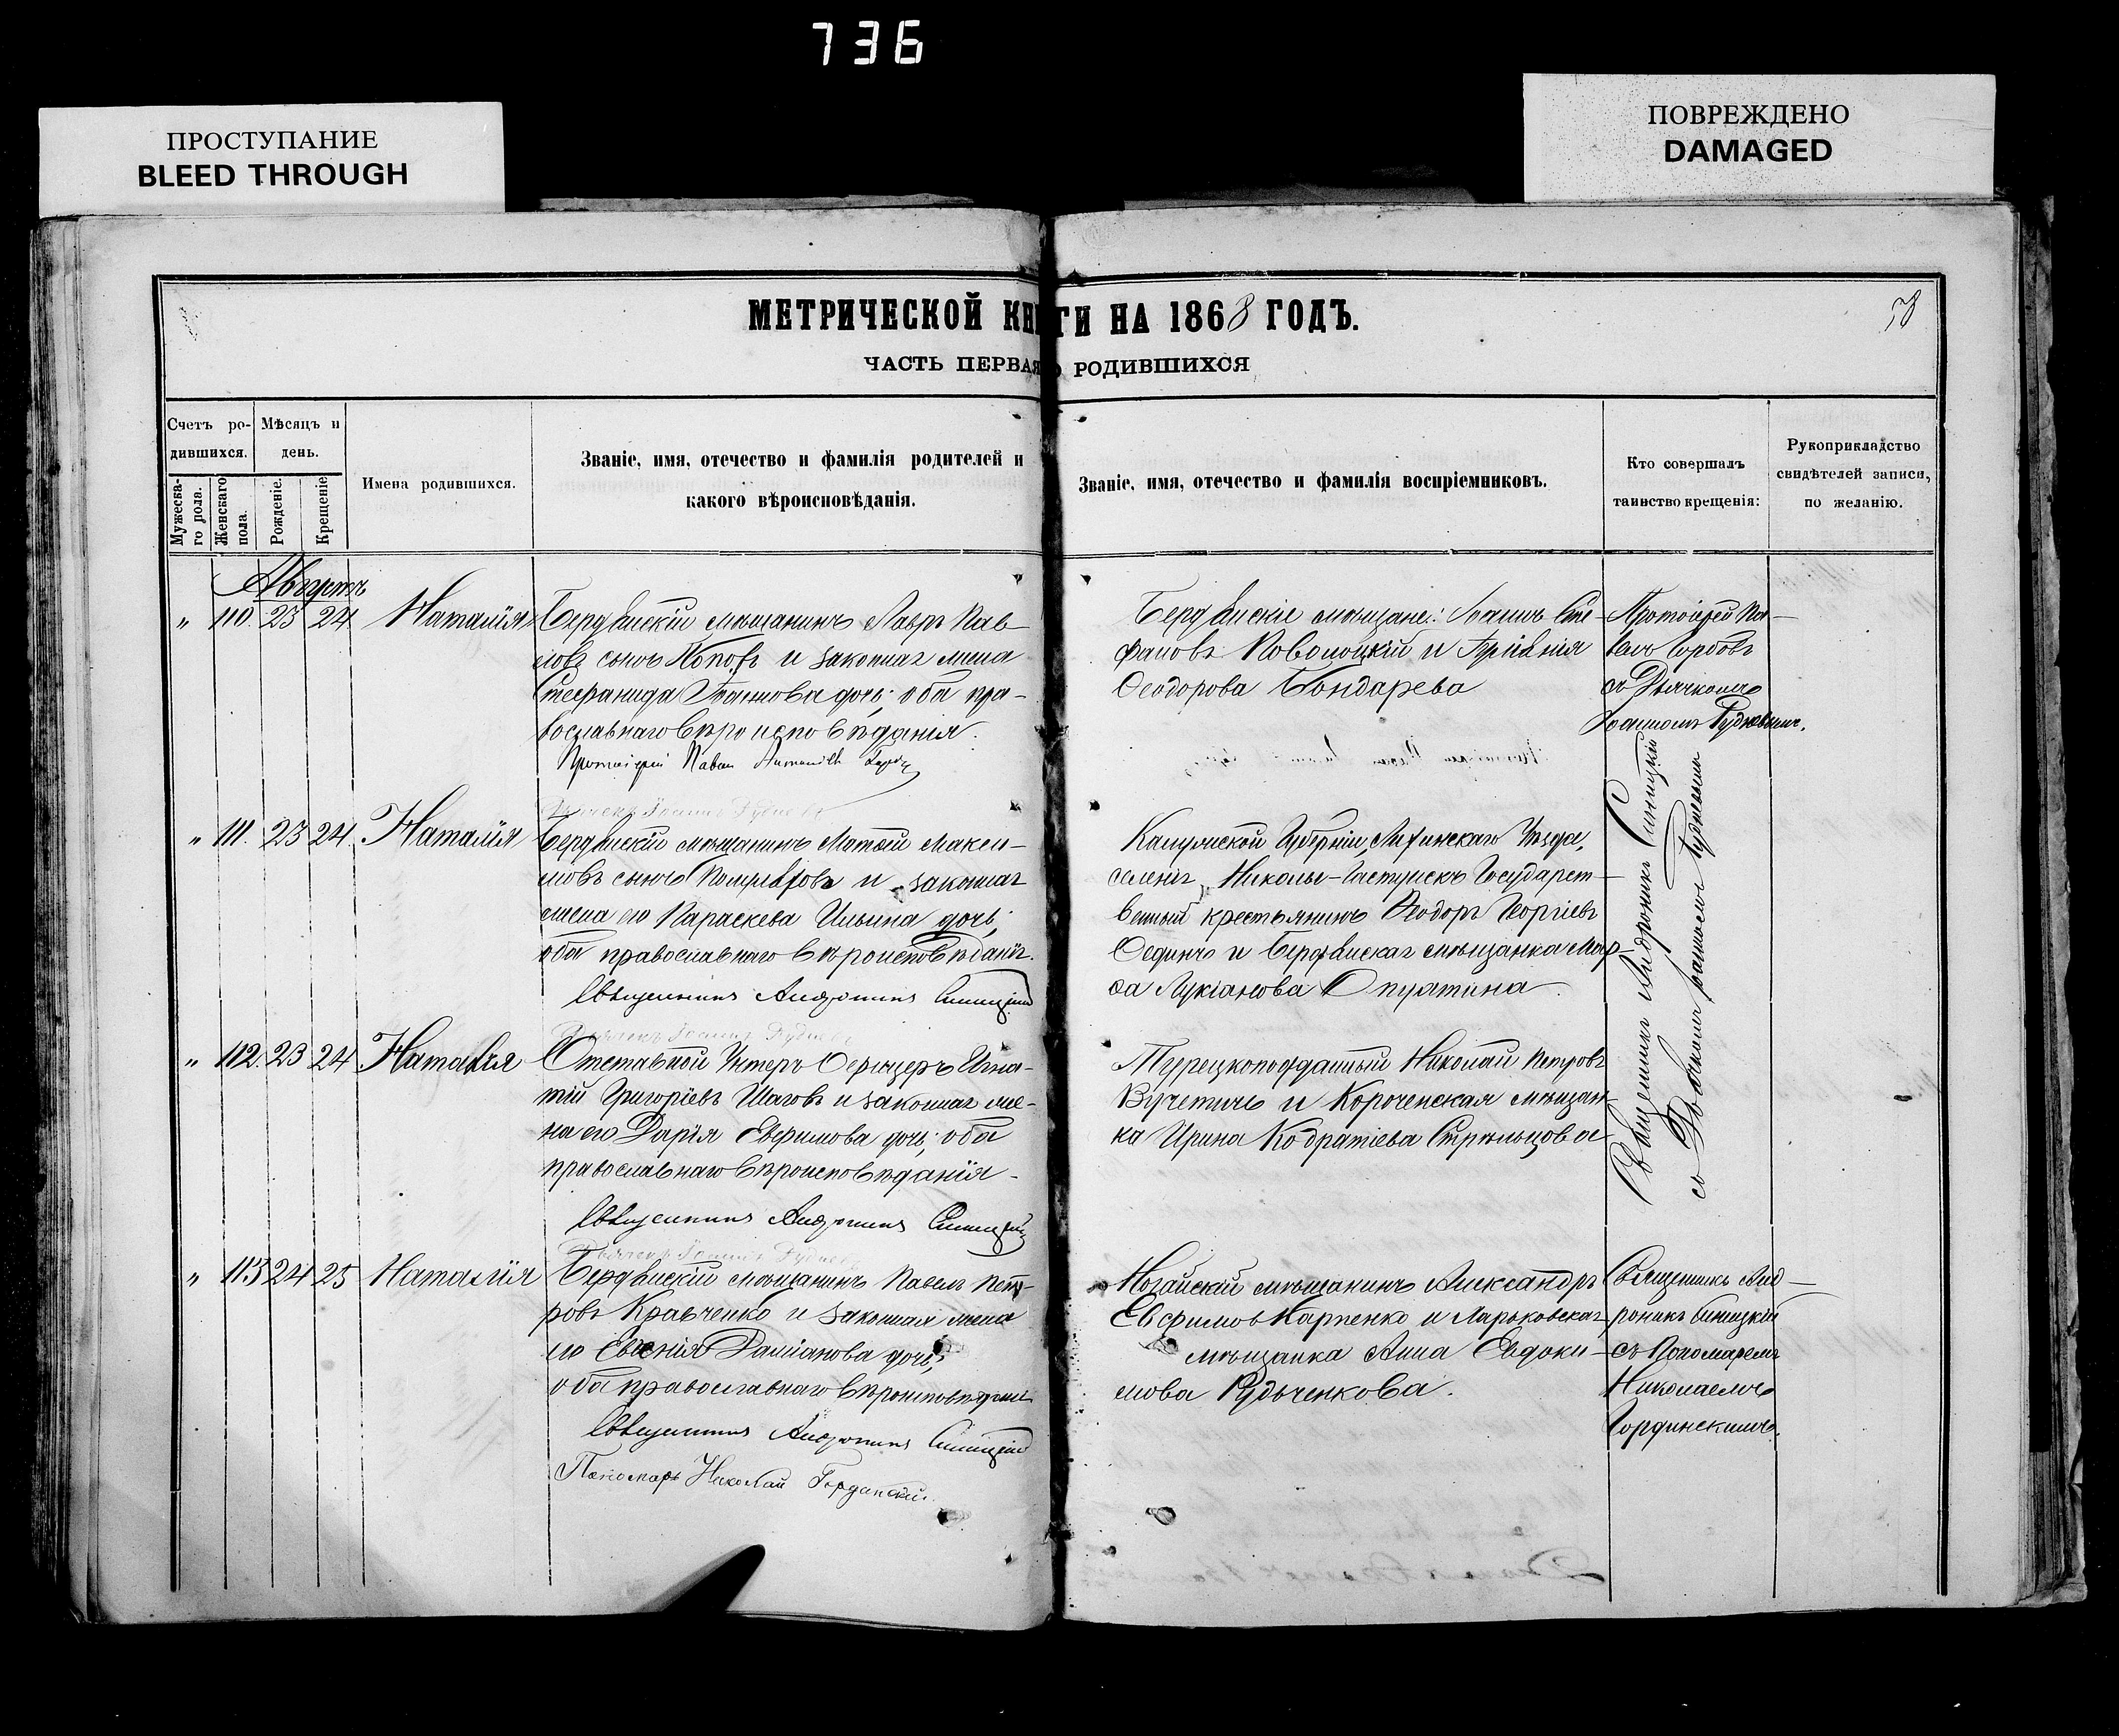 736
ПРОСТУПАНИЕ
BLEED THROUGH
ПОВРЕЖДЕНО
DAMAGED
МЕТРИЧЕСКОЙ КНИГИ НА 1868 ГОДЪ.
58
ЧАСТЬ ПЕРВАЯ О РОДИВШИХСЯ
Счетъ ро-
дившихся.
Мѣсяцъ и
день.
Мужеска-
го пола.
Женскаго
пола.
Рожденіе.
Крещеніе
Имена родившихся.
Званіе, имя, отечество и фамилія родителей и
какого вѣроисповѣданія.
Званіе, имя, отечество и фамилія воспріемниковъ.
Кто совершалъ
таинство крещенія:
Рукоприкладство
свидѣтелей записи,
по желанію.
Августъ
„ 110. 23 24 Наталія
Бердянскій мѣщанинъ Лавръ Пав-
ловъ сынъ Поповъ и законная жена
Стефанида Іоаннова дочь; оба пра-
вославнаго вѣроисповѣданія.
Протоіерей Павелъ
Бердянскіе мѣщане: Іоаннъ Сте-
фановъ Новоцкій и
Ѳеодорова Бондарева
Протоіерей Па-
велъ
съ Дьячкомъ
Іоанномъ Рудневымъ.
„ 111. 23 24. Наталія
Бердянскій мѣщанинъ Матѳій Макси-
мовъ сынъ и законная
жена его Параскева Ильина дочь;
оба православнаго вѣроисповѣданія.
Священникъ Андроникъ Синицкій
Дьячекъ Іоаннъ Рудневъ
Калужской Губерніи, Уѣзда,
селенія Государст-
венный крестьянинъ Ѳеодоръ Георгіевъ
и Бердянская мѣщанка Мар-
ѳа Лукіанова
Священникъ Андроникъ Синицкій
съ Дьячкомъ Іоанномъ Рудневымъ
„ 112. 23 24 Наталія
Отставной Унтеръ Офицеръ Игна-
тій Григоріевъ Шаговъ и законная же-
на его Дарія Евфимова дочь; оба
православнаго вѣроисповѣданія
Священникъ Андроникъ Синицкій
Дьячекъ Іоаннъ Рудневъ
Турецкоподданный Николай Петровъ
Вучетичъ и Короченская мѣщан-
ка Ирина Кодратіева Стрѣльцова
„ 113 24 25 Наталія
Бердянскій мѣщанинъ Павелъ Пет-
ровъ Кравченко и законная жена
его Евгенія Даміанова дочь;
оба православнаго вѣроисповѣданія
Священникъ Андроникъ Синицкій
Пономарь Николай Гординскій.
Ногайскій мѣщанинъ Александръ
Евфимов Карпенко и Харьковская
мѣщанка Анна Евдоки-
мова Рудьченкова.
Священникъ Анд-
роникъ Синицкій
съ Пономаремъ
Николаемъ
Гординскимъ.